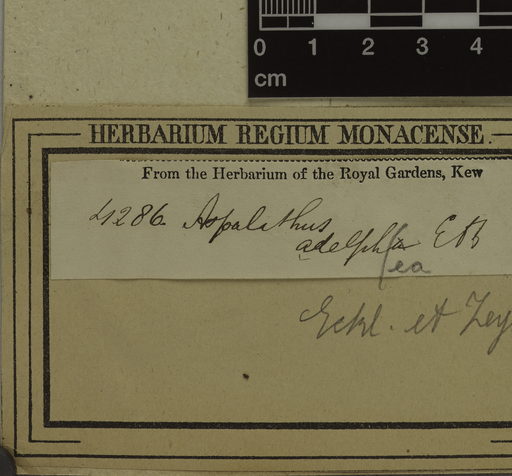 0 1 2 3 4
cm
HERBARIUM REGIUM MONACENSE.
From the Herbarium of the Royal Gardens, Kew
Aspalathus
adelphea
Eckl. et Zey